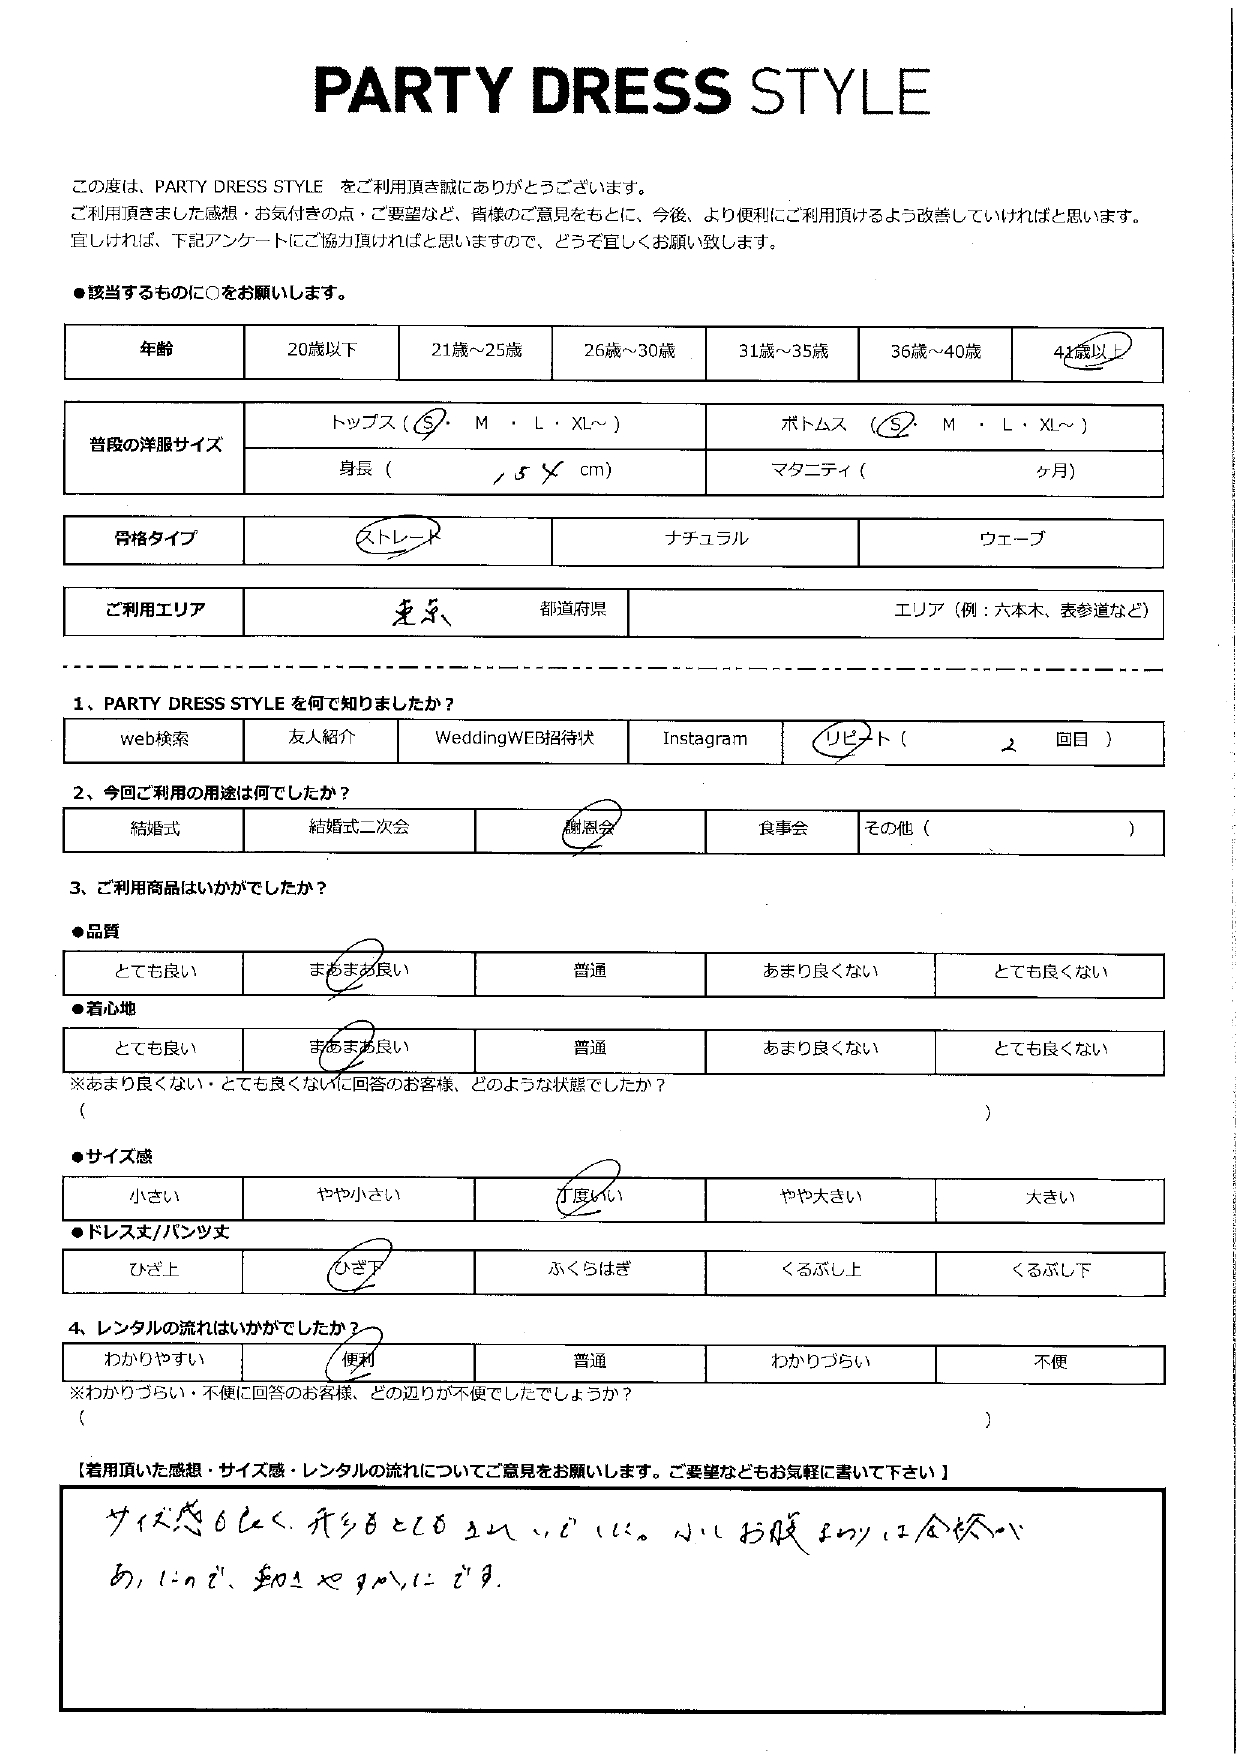 PARTY DRESS STYLE
この度は、PARTY DRESS STYLE をご利用頂き誠にありがとうございます。
ご利用頂きました感想・お気付きの点・ご要望など、皆様のご意見をもとに、今後、より便利にご利用頂けるよう改善していければと思います。
宜しければ、下記アンケートにご協力頂ければと思いますので、どうぞ宜しくお願い致します。
●該当するものに○をお願いします。
年齢 20歳以下 21歳～25歳 26歳～30歳 31歳～35歳 36歳～40歳 41歳以上
普段の洋服サイズ トップス ( S ・ M ・ L ・ XL～ ) ボトムス ( S ・ M ・ L ・ XL～ )
身長 ( 154 cm) マタニティ ( ヶ月)
骨格タイプ ストレート ナチュラル ウェーブ
ご利用エリア 東京 都道府県 エリア（例：六本木、表参道など）
1、PARTY DRESS STYLE を何で知りましたか？
web検索 友人紹介 WeddingWEB招待状 Instagram リピート ( 2 回目 )
2、今回ご利用の用途は何でしたか？
結婚式 結婚式二次会 謝恩会 食事会 その他 ( )
3、ご利用商品はいかがでしたか？
●品質
とても良い まあまあ良い 普通 あまり良くない とても良くない
●着心地
とても良い まあまあ良い 普通 あまり良くない とても良くない
※あまり良くない・とても良くないに回答のお客様、どのような状態でしたか？
( )
●サイズ感
小さい やや小さい 丁度いい やや大きい 大きい
●ドレス丈/パンツ丈
ひざ上 ひざ下 ふくらはぎ くるぶし上 くるぶし下
4、レンタルの流れはいかがでしたか？
わかりやすい 便利 普通 わかりづらい 不便
※わかりづらい・不便に回答のお客様、どの辺りが不便でしたでしょうか？
( )
【着用頂いた感想・サイズ感・レンタルの流れについてご意見をお願いします。ご要望などもお気軽に書いて下さい 】
サイズ感も良く、形もとてもきれいでした。少しお腹まわりは余裕が
あったので、動きやすかったです。